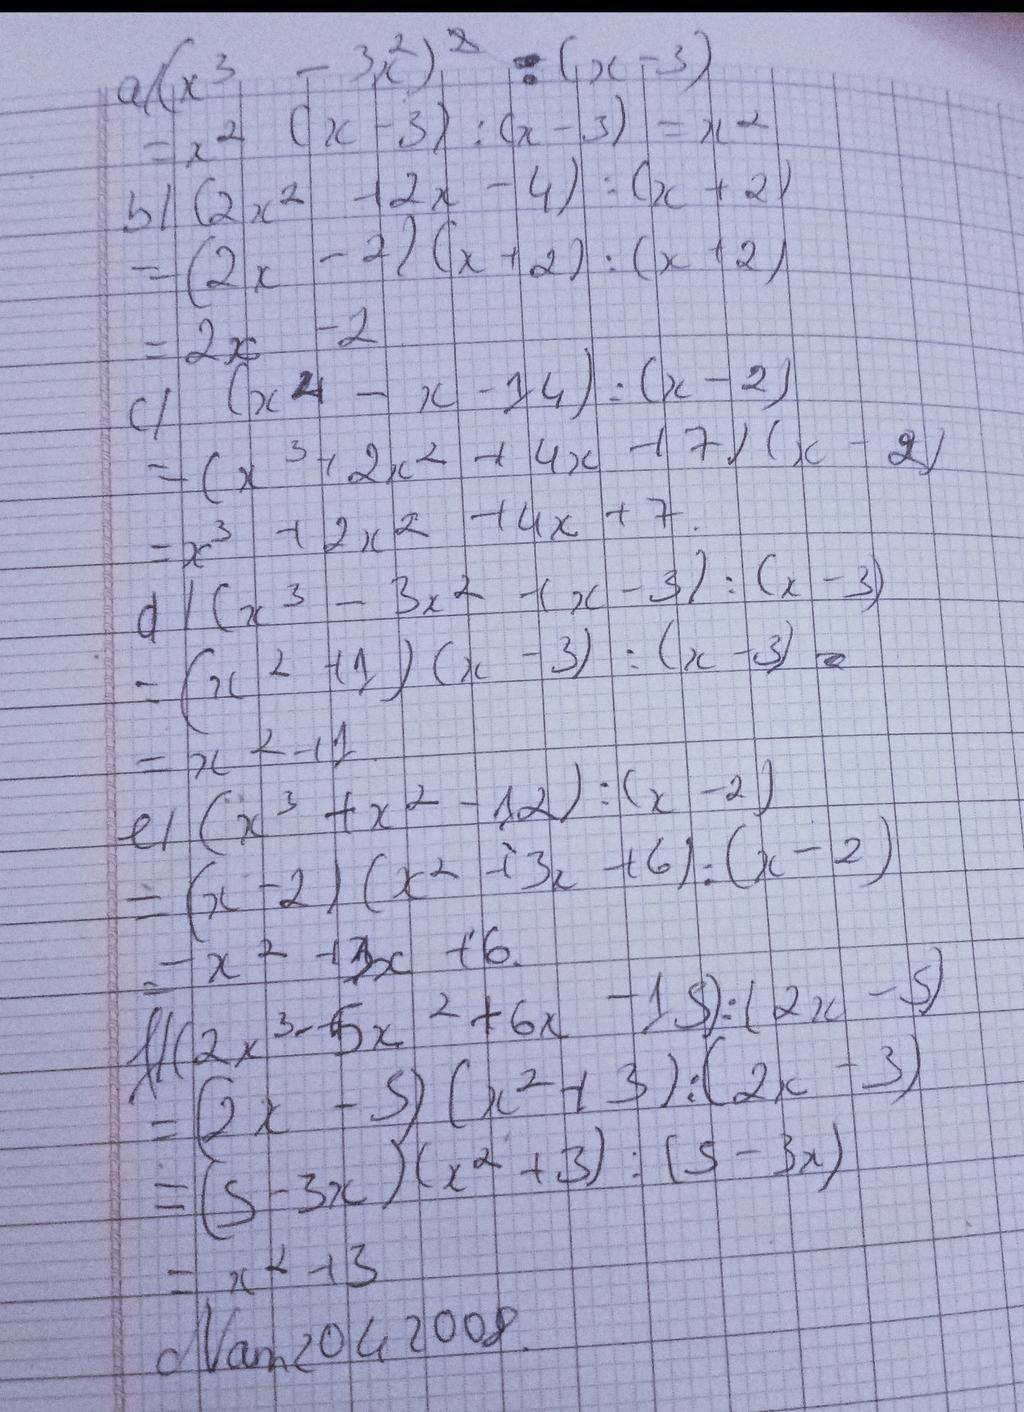 a/(x³ - 3x²) : (x-3)
= x² (x-3) : (x-3) = x²
b/ (2x² +2x -4) : (x+2)
= (2x -2)(x+2) : (x+2)
= 2x -2
c/ (x4 - x -14) : (x-2)
= (x³+2x² +4x +7)(x - 2)
= x³ +2x² +4x +7.
d/(x³ - 3x² +x-3) : (x-3)
= (x² +1)(x-3) : (x-3)
= x² +1
e/ (x³ +x² -12) : (x-2)
= (x-2)(x² +3x +6) : (x-2)
= x² +3x +6.
f/(2x³-5x² +6x -15) : (2x -5)
= (2x -5)(x² +3) : (2x -3)
= (5-3x)(x² +3) : (5-3x)
= x² +3
Nam2042008.